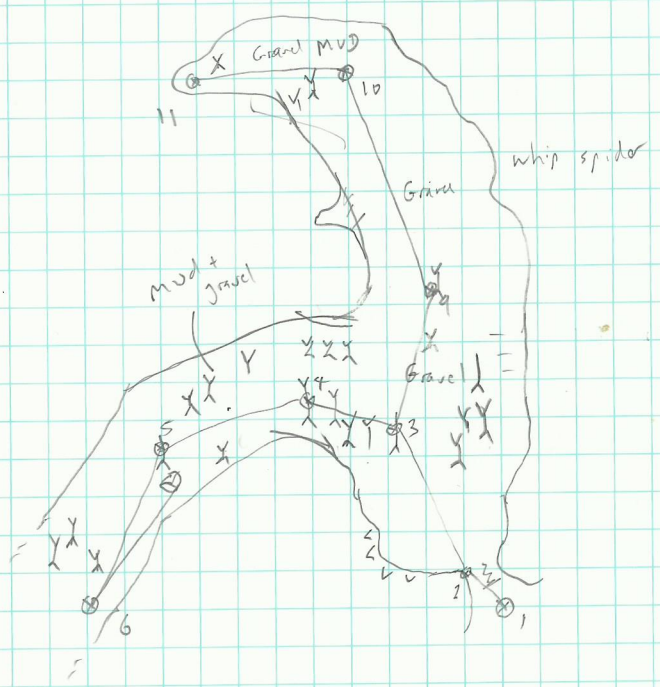 Gravel MUD
X
10
11
whip spider
Gravel
mud +
gravel
9
Gravel
4
5
3
2
1
6